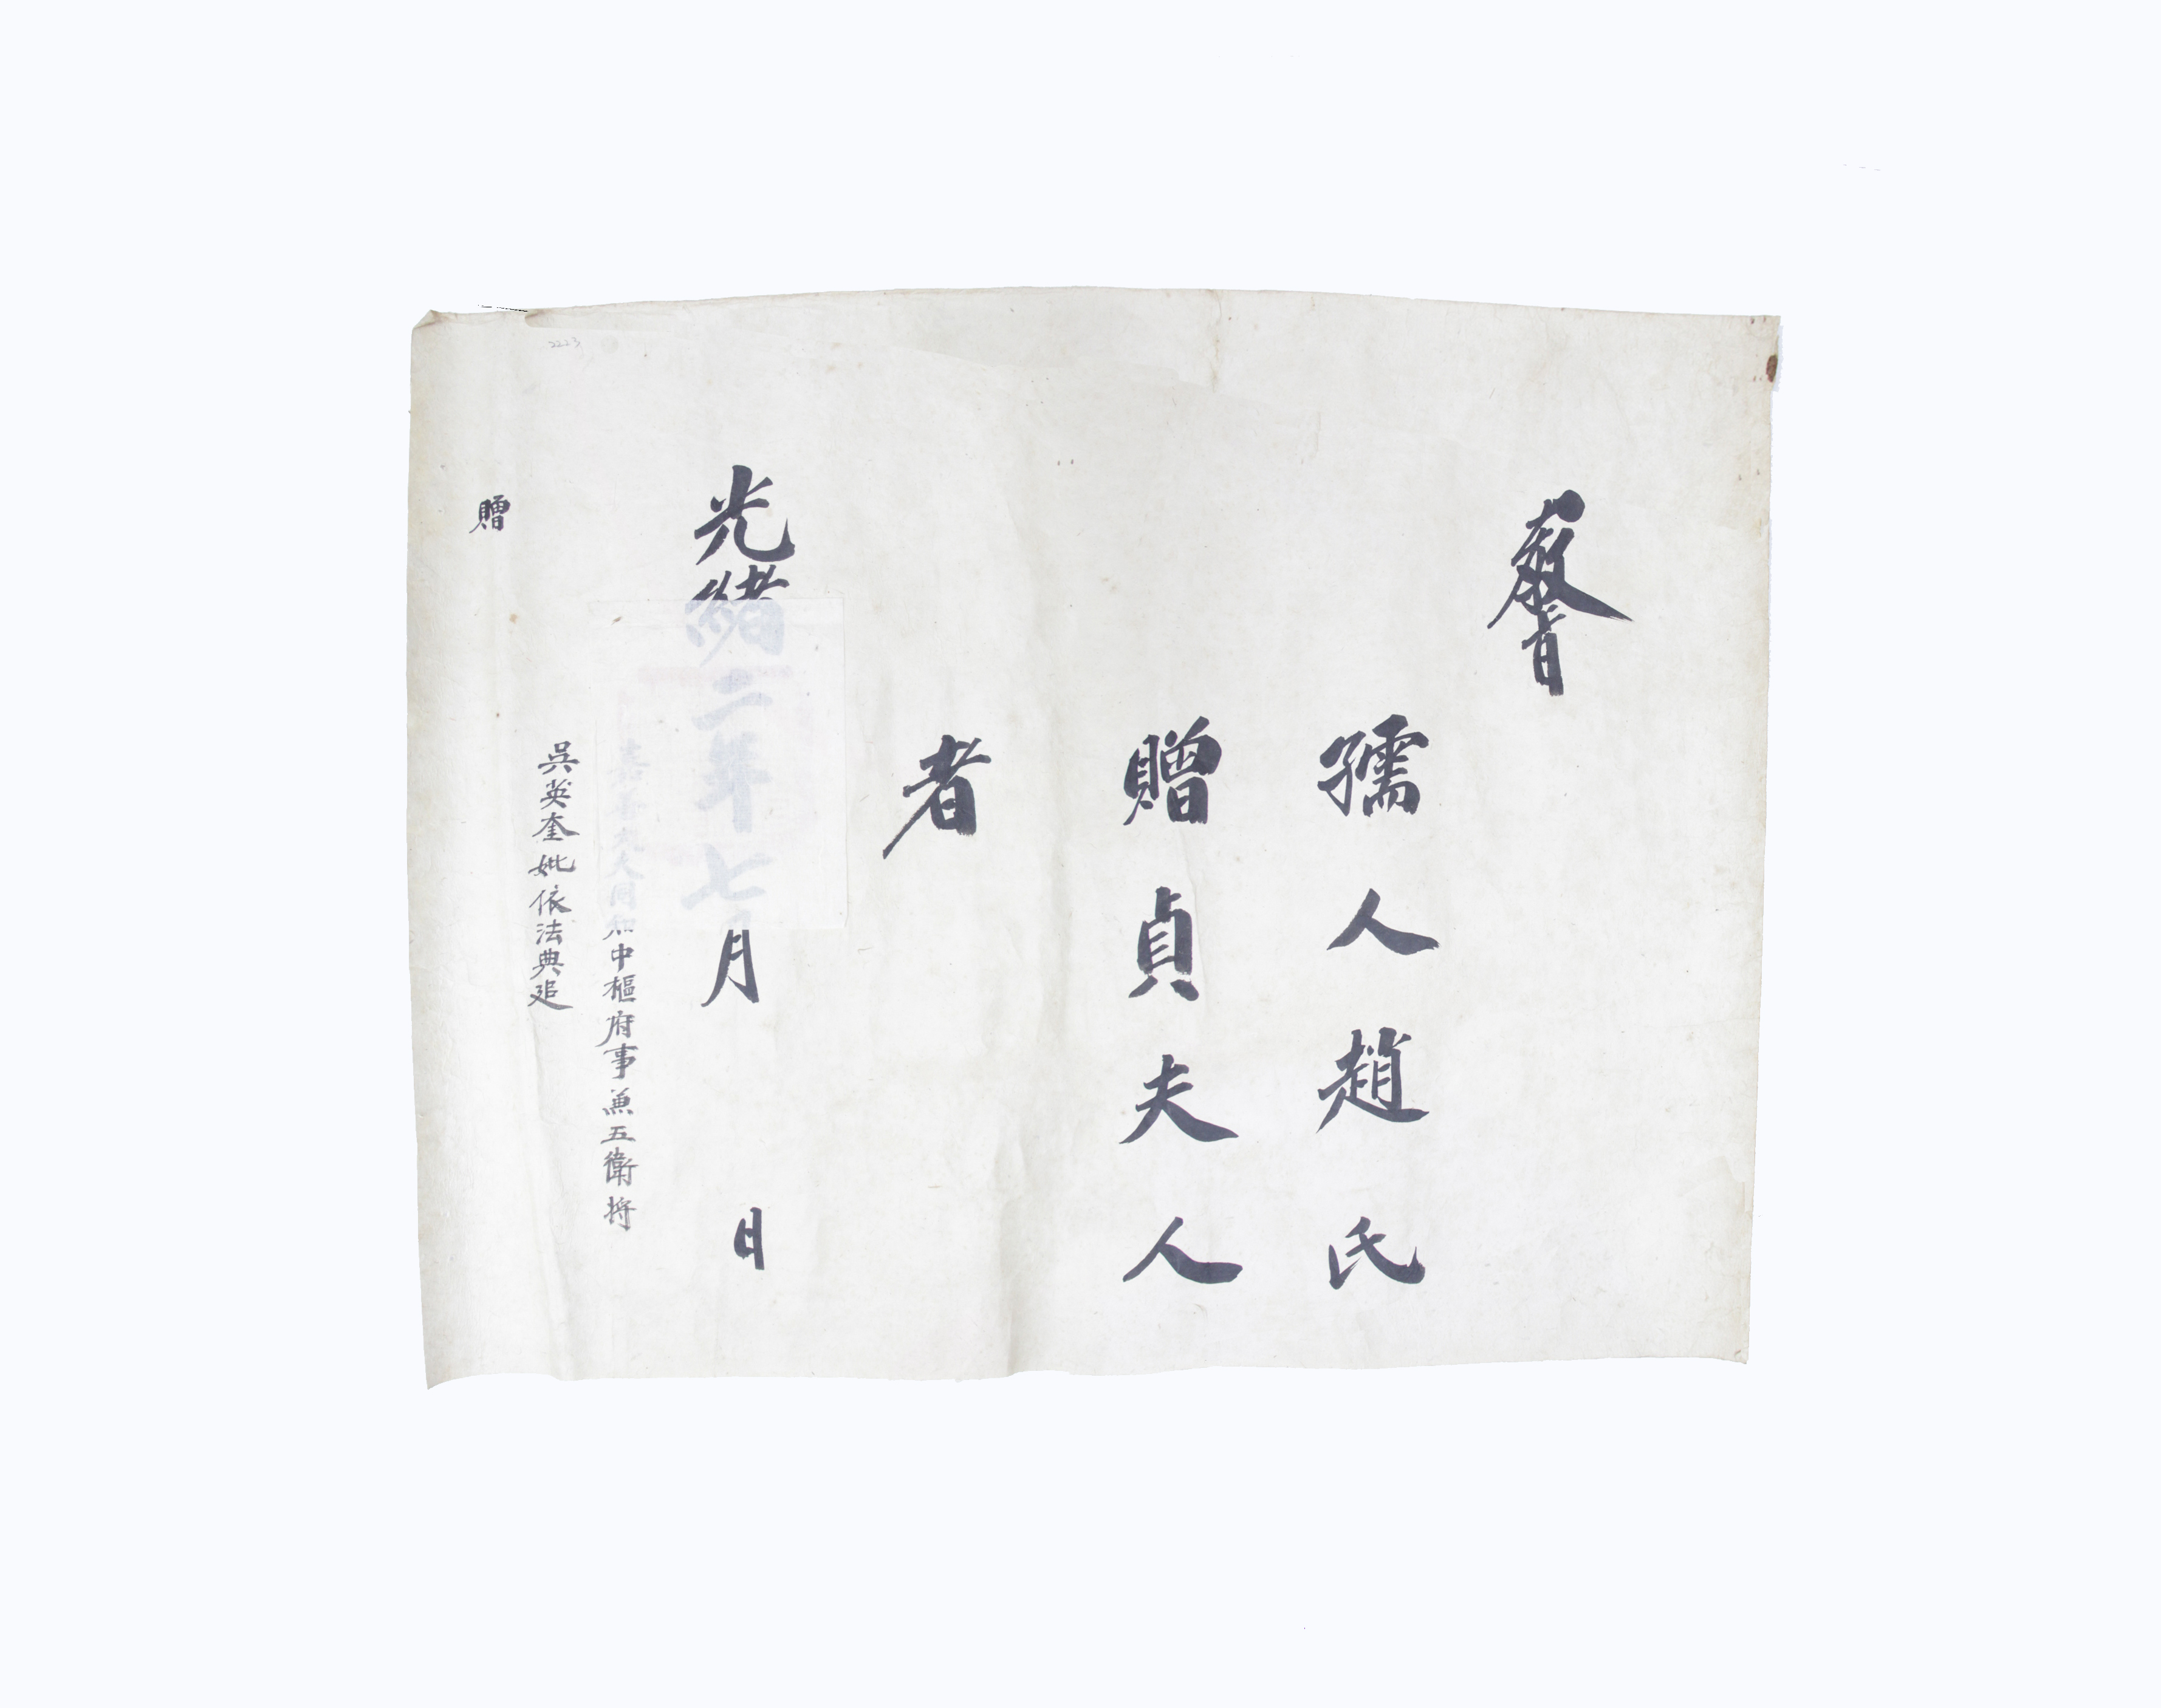 教旨
孺人趙氏
贈貞夫人
者
光緒二年七月 日
嘉善大夫同知中樞府事兼五衛將
吳英奎妣依法典追
贈
2223